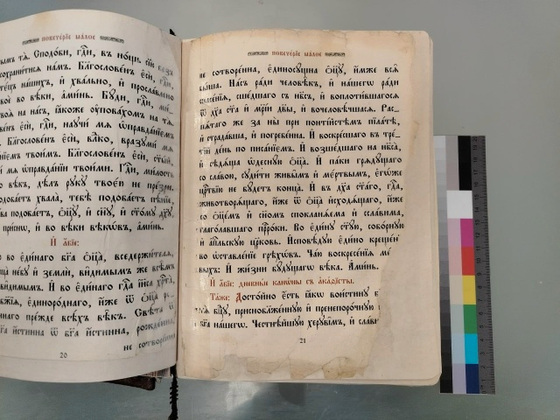 повечерїе малое
тѧ. Сподоби, гд҃и, въ нощь сїю
сохранитисѧ намъ. Благословенъ є҆сѝ, гд҃и,
ѻ҆тє́цъ нашихъ, и҆ хвально, и҆ прославлено
твоѐ во вѣки, а҆ми́нь. Бꙋди, гд҃и,
твоѧ̀ на насъ, ꙗ҆́коже ᲂу҆повахомъ на тѧ̀.
є҆сѝ, гд҃и, наꙋчи́ мѧ ѡ҆правданїємъ
Благословенъ є҆сѝ, влⷣко, вразꙋми́ мѧ
твои̑мъ. Благословенъ є҆сѝ,
мѧ̀ ѡ҆правданїи твоими. Гд҃и, милость
вѣкъ, дѣлъ рꙋкꙋ твоєю не презри.
хвала, тебѣ̀ подобаетъ пѣнїе,
подобаетъ, ѻ҆ц҃ꙋ̀, и҆ сн҃ꙋ, и҆ ст҃омꙋ дх҃ꙋ,
и҆ во вѣки вѣкѡвъ, а҆ми́нь.
И҆ а҆бїе:
во є҆ди́наго бг҃а ѻ҆ц҃а̀, вседержителѧ,
нб҃ꙋ̀ и҆ земли́, ви̑димымъ же всѣ̑мъ
И҆ во є҆ди́наго гд҃а і҆и҃са хрⷭ҇та̀,
бж҃їѧ, є҆диноро́днаго, и҆́же ѿ ѻ҆ц҃а̀
прежде всѣхъ вѣкъ. Свѣта ѿ
бг҃а и҆́стинна ѿ бг҃а и҆́стинна, рожденна,
не сотворенна
20
повечерїе малое
не сотворе́нна, є҆диносꙋ́щна ѻ҆ц҃ꙋ̀, и҆́мже всѧ̑
бы́ша. Насъ ради человѣ̑къ, и҆ нашегѡ ради
спасе́нїѧ, сше́дшаго съ нб҃съ, и҆ воплоти́вшагосѧ
ѿ дх҃а ст҃а и҆ мр҃і́и дв҃ы, и҆ вочеловѣ́чшасѧ. Рас-
пѧ́таго же за ны̀ при понті́йстѣмъ пїла́тѣ,
и҆ страда́вша, и҆ погребе́нна. И҆ воскре́сшаго въ тре-
тїй де́нь по писа́нїємъ. И҆ возше́дшаго на нб҃са̀,
и҆ сѣдѧ́ща ѡ҆деснꙋ́ю ѻ҆ц҃а̀. И҆ па́ки грѧдꙋ́щаго
со сла́вою, сꙋди́ти живы̑мъ и҆ мє́ртвымъ, є҆гѡ́же
црⷭ҇твїю не бꙋ́детъ конца̀. И҆ въ дх҃а ст҃а́го, гд҃а,
животворѧ́щаго, и҆́же ѿ ѻ҆ц҃а̀ и҆сходѧ́щаго, и҆́же
со ѻ҆ц҃е́мъ и҆ сн҃омъ спокланѧ́ема и҆ ссла́вима,
глаго́лавшаго прⷪ҇ро́ки. Во є҆ди́нꙋ ст҃ꙋ́ю, собо́рнꙋю
и҆ а҆пⷭ҇льскꙋю цр҃ковь. И҆сповѣ́дꙋю є҆ди́но креще́нїе
во ѡ҆ставле́нїе грѣхѡ́въ. Ча́ю воскресе́нїѧ ме́-
выхъ: И҆ жи́зни бꙋ́дꙋщагѡ вѣ́ка. А҆ми́нь.
И҆ а҆бїе: дневны́й кано́ны съ а҆ка́ѳїсты.
Та́же: Досто́йно є҆́сть ꙗ҆́кѡ вои́стиннꙋ
бц҃ꙋ, присноблаже́ннꙋю и҆ пренепоро́чнꙋю
бг҃а на́шегѡ. Честнѣ́йшꙋю херꙋві̑мъ, и҆
21